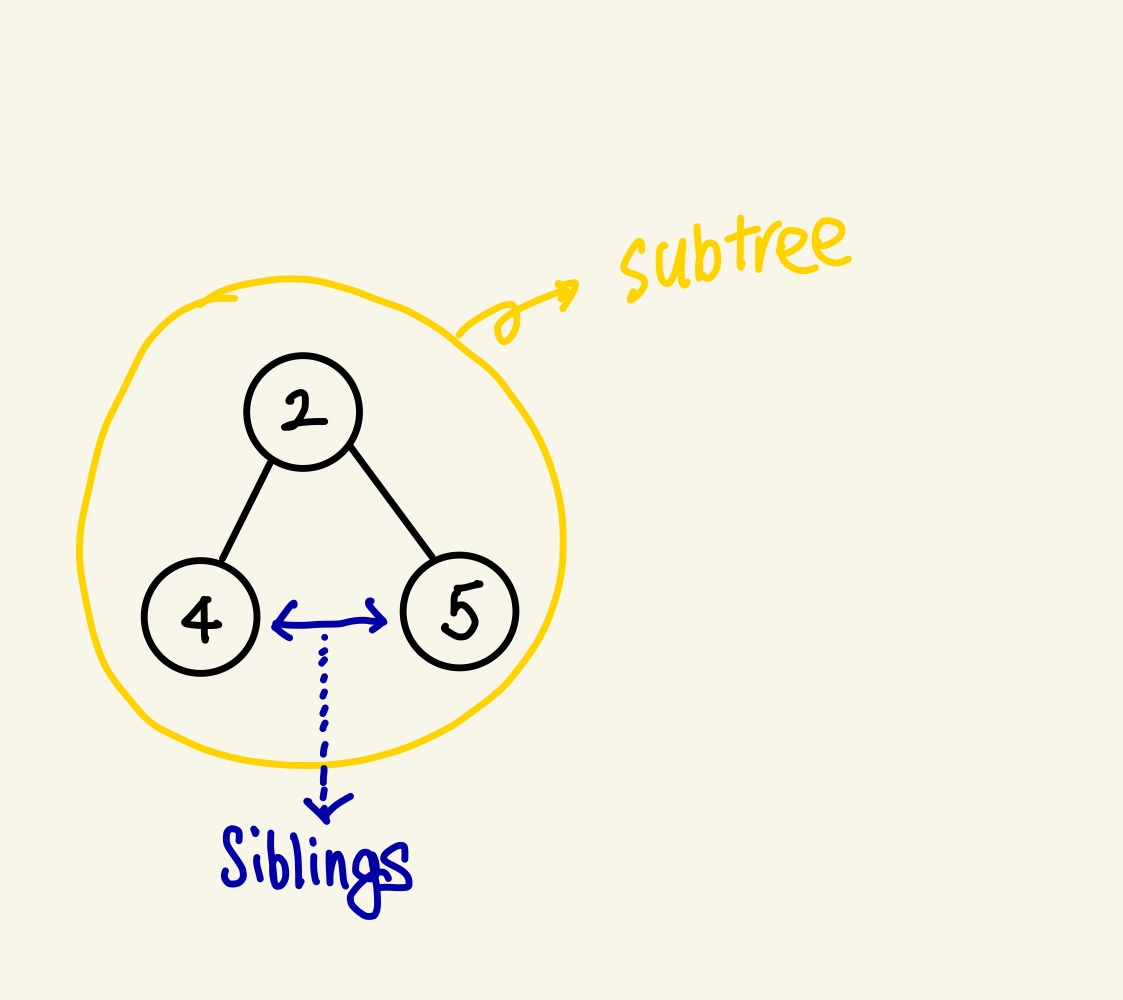 subtree
2
4
5
Siblings